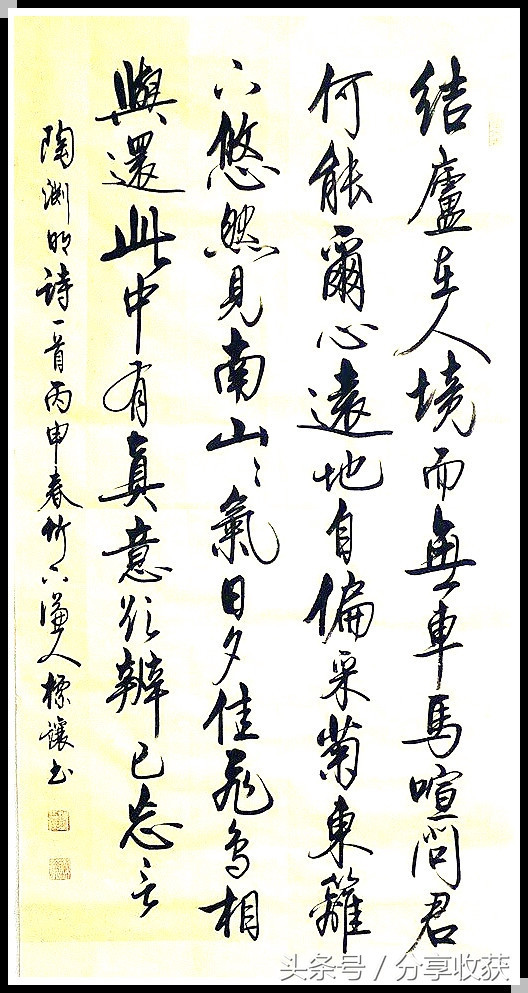 結廬在人境而無車馬喧問君
何能爾心遠地自偏采菊東籬
下悠然見南山〻氣日夕佳飛鳥相
與還此中有真意欲辨已忘言
陶渊明詩一首丙申春竹下謙人標讓书
头条号 / 分享收获